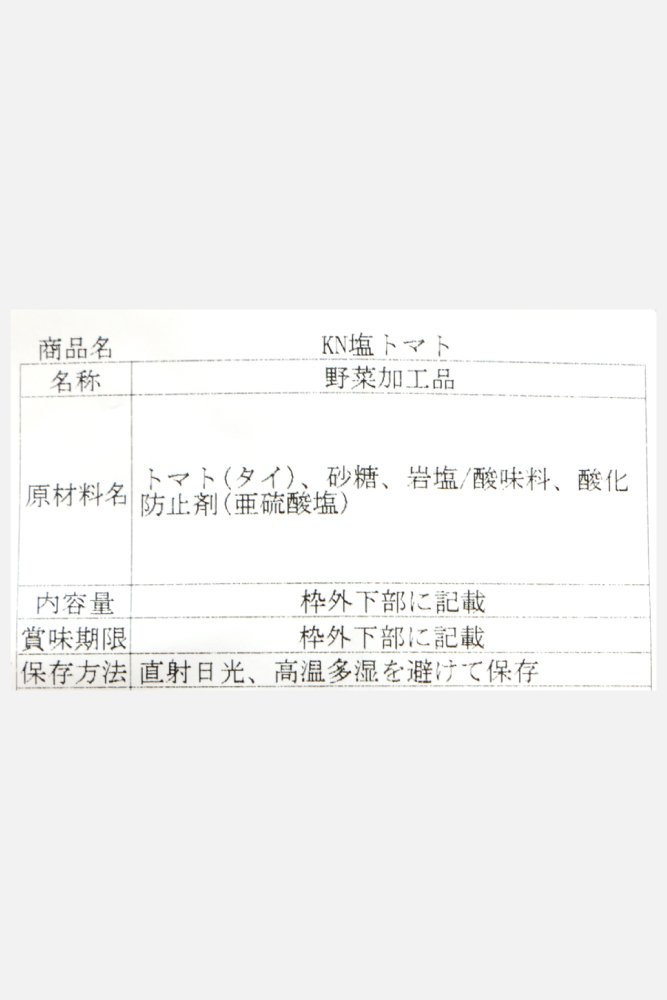 商品名 KN塩トマト
名称 野菜加工品
原材料名 トマト(タイ)、砂糖、岩塩/酸味料、酸化
防止剤(亜硫酸塩)
内容量 枠外下部に記載
賞味期限 枠外下部に記載
保存方法 直射日光、高温多湿を避けて保存